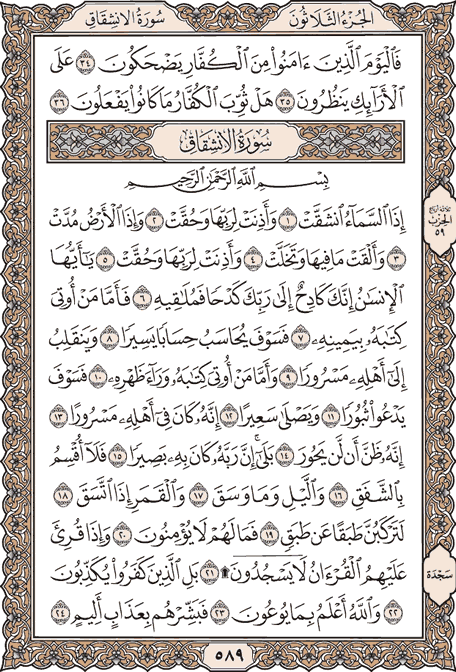 سُورَةُ الانْشِقَاقِ الجُزْءُ الثَّلَاثُونَ
فَٱلْيَوْمَ ٱلَّذِينَ ءَامَنُوا۟ مِنَ ٱلْكُفَّارِ يَضْحَكُونَ ٣٤ عَلَى
ٱلْأَرَآئِكِ يَنظُرُونَ ٣٥ هَلْ ثُوِّبَ ٱلْكُفَّارُ مَا كَانُوا۟ يَفْعَلُونَ ٣٦
سُورَةُ الانْشِقَاقِ
بِسْمِ ٱللَّهِ ٱلرَّحْمَٰنِ ٱلرَّحِيمِ
إِذَا ٱلسَّمَآءُ ٱنشَقَّتْ ١ وَأَذِنَتْ لِرَبِّهَا وَحُقَّتْ ٢ وَإِذَا ٱلْأَرْضُ مُدَّتْ
٣ وَأَلْقَتْ مَا فِيهَا وَتَخَلَّتْ ٤ وَأَذِنَتْ لِرَبِّهَا وَحُقَّتْ ٥ يَٰٓأَيُّهَا
ٱلْإِنسَٰنُ إِنَّكَ كَادِحٌ إِلَىٰ رَبِّكَ كَدْحًا فَمُلَٰقِيهِ ٦ فَأَمَّا مَنْ أُوتِىَ
كِتَٰبَهُۥ بِيَمِينِهِۦ ٧ فَسَوْفَ يُحَاسَبُ حِسَابًا يَسِيرًا ٨ وَيَنقَلِبُ
إِلَىٰٓ أَهْلِهِۦ مَسْرُورًا ٩ وَأَمَّا مَنْ أُوتِىَ كِتَٰبَهُۥ وَرَآءَ ظَهْرِهِۦ ١٠ فَسَوْفَ
يَدْعُوا۟ ثُبُورًا ١١ وَيَصْلَىٰ سَعِيرًا ١٢ إِنَّهُۥ كَانَ فِىٓ أَهْلِهِۦ مَسْرُورًا ١٣
إِنَّهُۥ ظَنَّ أَن لَّن يَحُورَ ١٤ بَلَىٰٓ ۚ إِنَّ رَبَّهُۥ كَانَ بِهِۦ بَصِيرًا ١٥ فَلَآ أُقْسِمُ
بِٱلشَّفَقِ ١٦ وَٱلَّيْلِ وَمَا وَسَقَ ١٧ وَٱلْقَمَرِ إِذَا ٱتَّسَقَ ١٨
لَتَرْكَبُنَّ طَبَقًا عَن طَبَقٍ ١٩ فَمَا لَهُمْ لَا يُؤْمِنُونَ ٢٠ وَإِذَا قُرِئَ
عَلَيْهِمُ ٱلْقُرْءَانُ لَا يَسْجُدُونَ ۩ ٢١ بَلِ ٱلَّذِينَ كَفَرُوا۟ يُكَذِّبُونَ
٢٢ وَٱللَّهُ أَعْلَمُ بِمَا يُوعُونَ ٢٣ فَبَشِّرْهُم بِعَذَابٍ أَلِيمٍ ٢٤
ثلاثة أرباع
الحزب
٥٩
سَجْدَة
٥٨٩